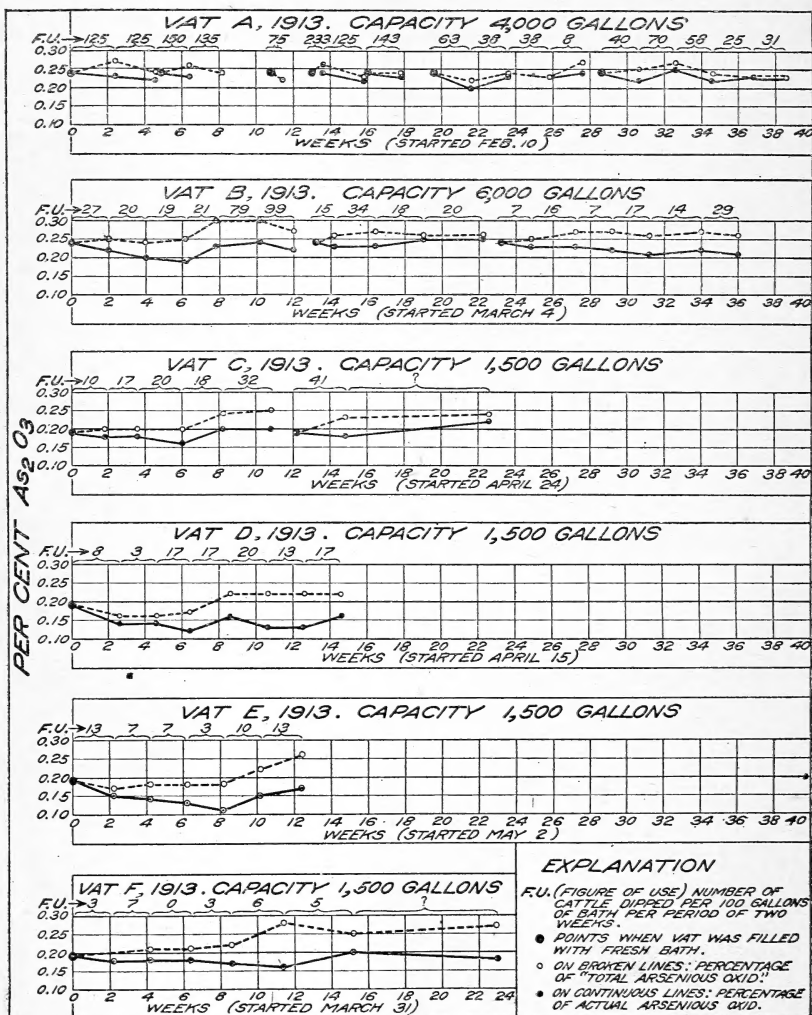 VAT A, 1913. CAPACITY 4,000 GALLONS
F.U.→125 125 150 135 75 233 125 143 63 38 38 8 40 70 58 25 31
0.30
0.25
0.20
0.15
0.10
0 2 4 6 8 10 12 14 16 18 20 22 24 26 28 30 32 34 36 38 40
WEEKS (STARTED FEB. 10)
VAT B, 1913. CAPACITY 6,000 GALLONS
F.U.→27 20 19 21 79 99 15 34 18 20 7 16 7 17 14 29
0.30
0.25
0.20
0.15
0.10
0 2 4 6 8 10 12 14 16 18 20 22 24 26 28 30 32 34 36 38 40
WEEKS (STARTED MARCH 4)
VAT C, 1913. CAPACITY 1,500 GALLONS
F.U.→10 17 20 18 32 41 ?
0.30
0.25
0.20
0.15
0.10
0 2 4 6 8 10 12 14 16 18 20 22 24 26 28 30 32 34 36 38 40
WEEKS (STARTED APRIL 24)
PER CENT As2O3
VAT D, 1913. CAPACITY 1,500 GALLONS
F.U.→8 3 17 17 20 13 17
0.30
0.25
0.20
0.15
0.10
0 2 4 6 8 10 12 14 16 18 20 22 24 26 28 30 32 34 36 38 40
WEEKS (STARTED APRIL 15)
VAT E, 1913. CAPACITY 1,500 GALLONS
F.U.→13 7 7 3 10 13
0.30
0.25
0.20
0.15
0.10
0 2 4 6 8 10 12 14 16 18 20 22 24 26 28 30 32 34 36 38 40
WEEKS (STARTED MAY 2)
VAT F, 1913. CAPACITY 1,500 GALLONS
F.U.→3 7 0 3 6 5 ?
0.30
0.25
0.20
0.15
0.10
0 2 4 6 8 10 12 14 16 18 20 22 24
WEEKS (STARTED MARCH 31)
EXPLANATION
F.U. (FIGURE OF USE) NUMBER OF
CATTLE DIPPED PER 100 GALLONS
OF BATH PER PERIOD OF TWO
WEEKS.
POINTS WHEN VAT WAS FILLED
WITH FRESH BATH.
ON BROKEN LINES: PERCENTAGE
OF "TOTAL ARSENIOUS OXID."
ON CONTINUOUS LINES: PERCENTAGE
OF ACTUAL ARSENIOUS OXID.